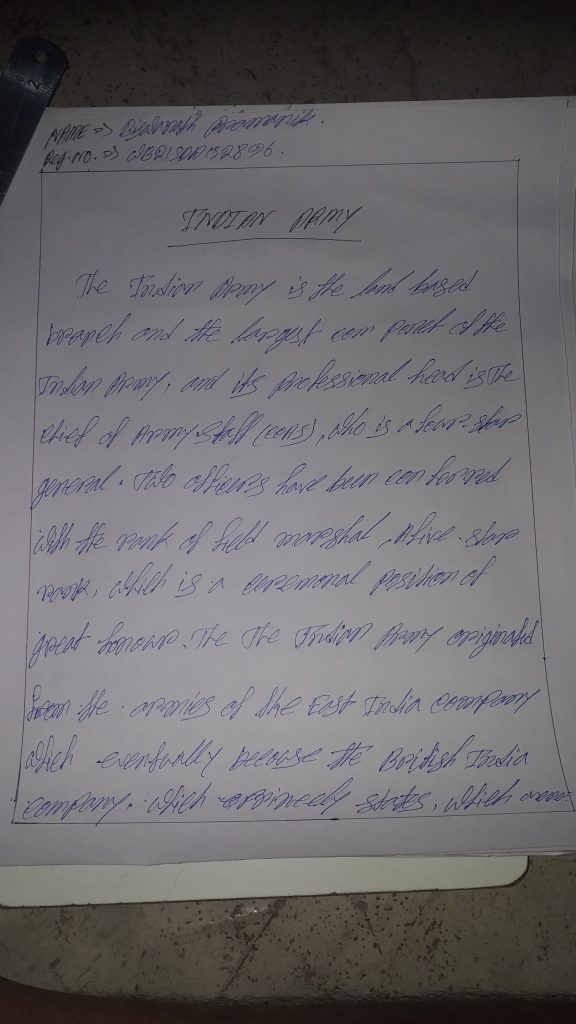 NAME => Biswanath Pramanik.
Reg. no. => WB21SDA
INDIAN ARMY
The Indian Army is the land based
branch and the largest com ponet of the
Indian Army, and its professional head is the
Chief of Army Staff (COAS), who is a four-star
general. Two officers have been con ferred
with the rank of field marshal, A five-star
rank, which is a ceremonal position of
great honour. The The Indian Army originated
from the armies of the East India Company
which eventually because the British India
Company. which states, which